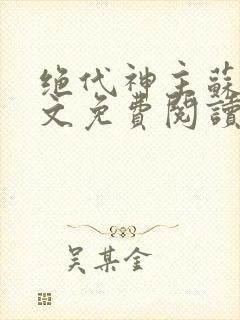 绝代神主蘇
文免費閱讀
吴某金